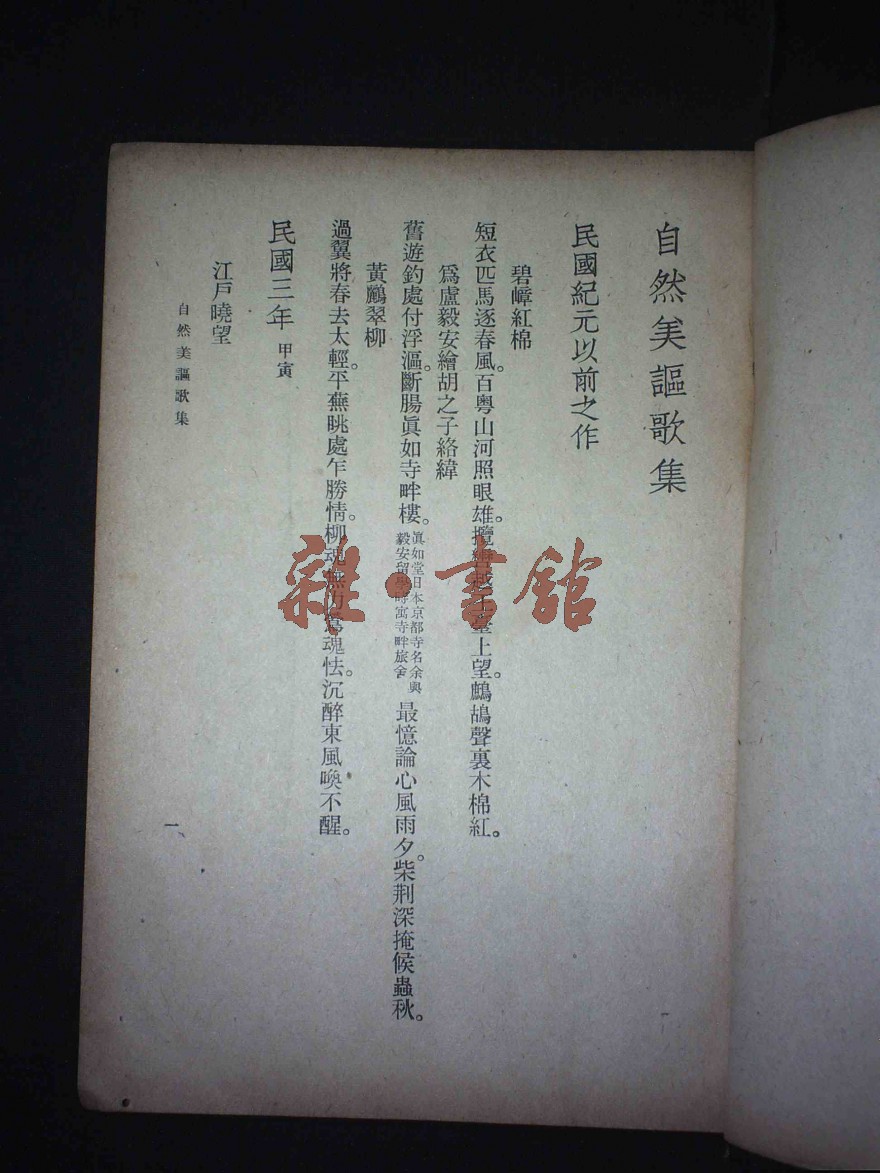 自然美謳歌集
民國紀元以前之作
碧嶂紅棉
短衣匹馬逐春風。百粵山河照眼雄。攬轡越王臺上望。鷓鴣聲裏木棉紅。
爲盧毅安繪胡之子絡緯
舊遊釣處付浮漚。斷腸眞如寺畔樓。眞如堂日本京都寺名余與毅安留學時寓寺畔旅舍 最憶論心風雨夕。柴荆深掩候蟲秋。
黃鸝翠柳
過翼將春去太輕。平蕪眺處乍勝情。柳魂無力鳥魂怯。沉醉東風喚不醒。
民國三年 甲寅
江戶曉望
自然美謳歌集
一
雜·書館